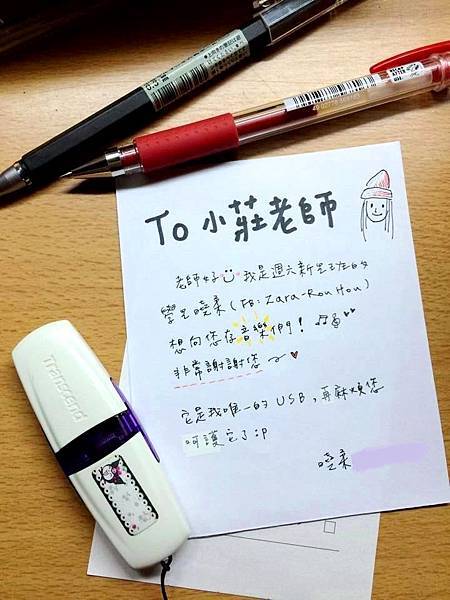 To 小莊老師
老師好 我是週六新生班的
學生曉柔(FB: Zara-Rou Hou)
想向您存音樂們!
非常謝謝您~
它是我唯一的 USB,再麻煩您
呵護它了:p
曉柔
Transcend